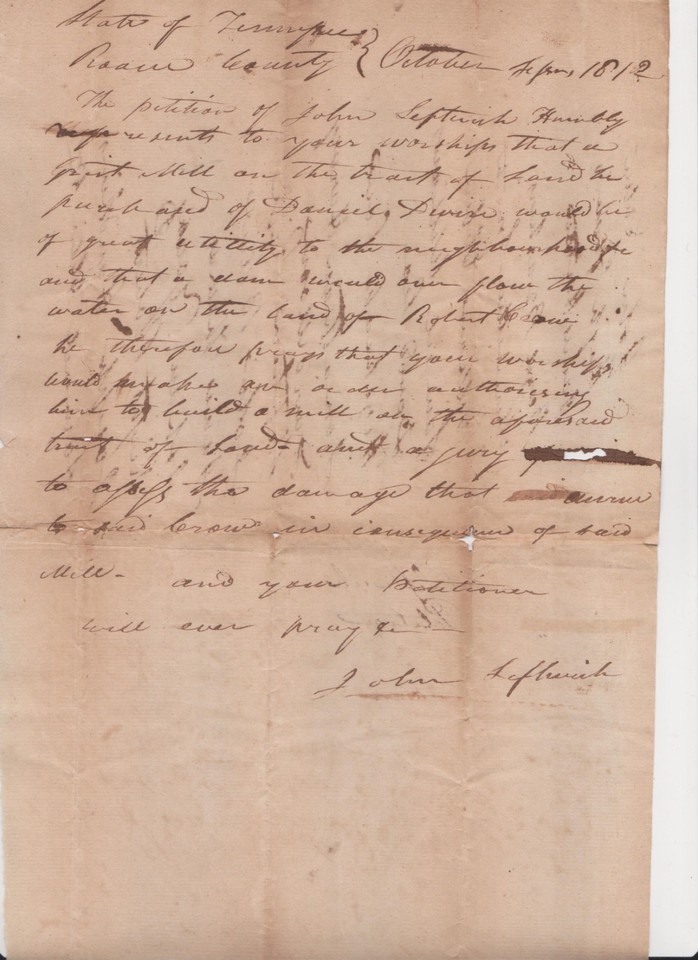 State of Tennessee }
Roane County } October Sessions 1812
The petition of John Leftwich Humbly
represents to your worships that a
Grist Mill on the tract of Land he
purchased of Daniel would be
of great utility to the neighbourhood &c
and that a dam would over flow the
water on the land of Robert Crow
he therefore prays that your worships
would make an order authorising
him to build a mill on the aforesaid
tract of Land and a jury
to assess the damage that
to said Crow in consequence of said
Mill- and your Petitioner
will ever pray &c
John Leftwich